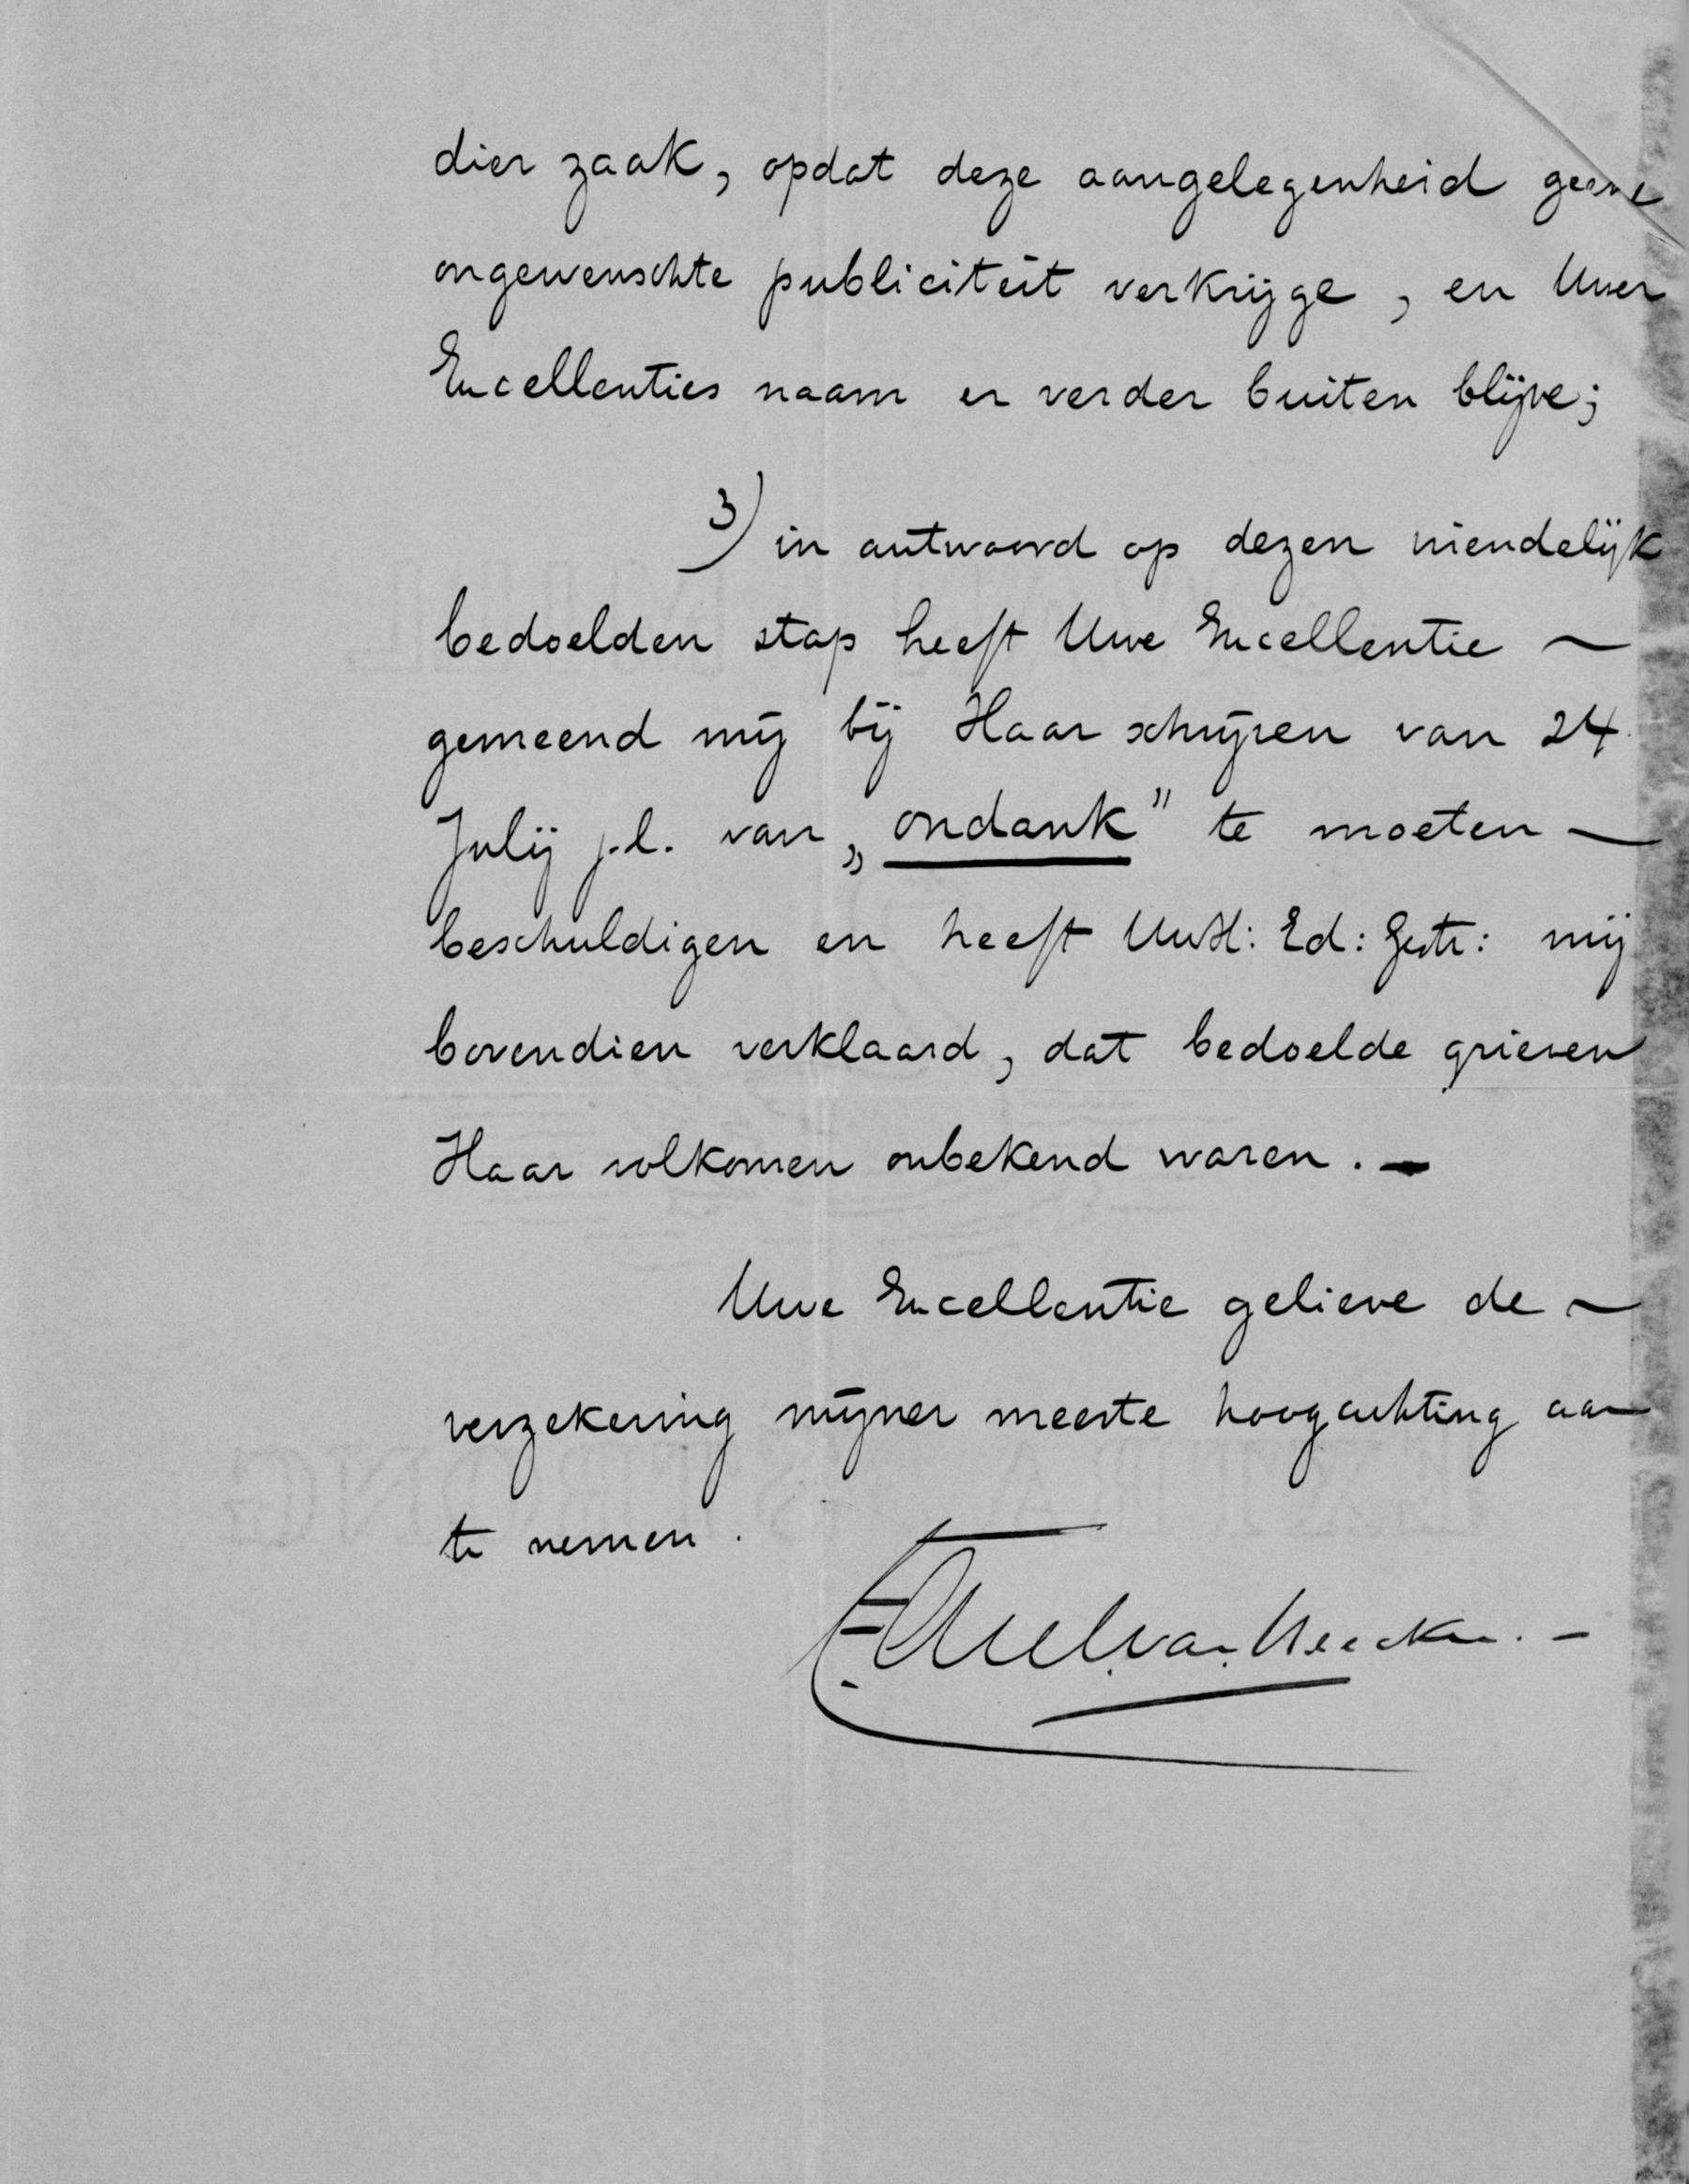 dier zaak, opdat deze aangelegenheid geene
ongewenschte publiciteit verkrijge, en Uwer
Excellenties naam er verder buiten blijve;
3) in antwoord op dezen vriendelijk
bedoelden stap heeft Uwe Excellentie —
gemeend mij bij Haar schrijven van 24
Julij j.l. van „ondank” te moeten —
beschuldigen en heeft UwH: Ed: Gestr: mij
bovendien verklaard, dat bedoelde grieven
Haar volkomen onbekend waren. —
Uwe Excellentie gelieve de —
verzekering mijner meeste hoogachting aan
te nemen.